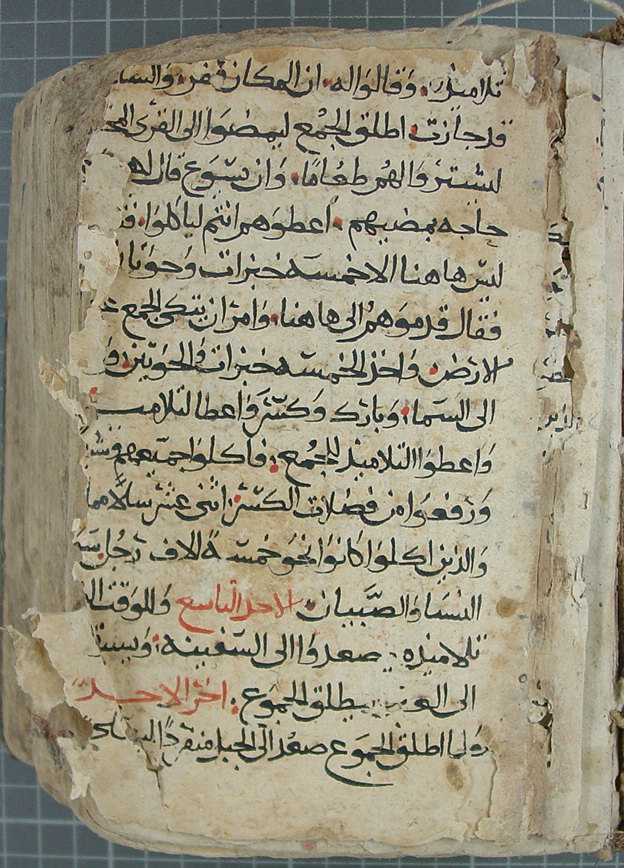 تلاميذه. وقالوا له. ان المكان قفر. والسا
قد جازت. اطلق الجمع ليمضوا الى القرى المح
ليشتروا لهم طعامًا. وان يسوع قال له
حاجه بمضيهم. اعطوهم انتم لياكلوا.
ليس هاهنا الا خمسة خبزات وحوتا
فقال قدموهم الى هاهنا. وامر ان يتكى الجمع
الارض. واخذ الخمسه خبزات والحوتين. و
الى السما. وبارك وكسر واعطا لتلاميـ
واعطوا التلاميذ للجمع. فاكلوا جميعهم وشـ
ورفعوا من فضلات الكسر. اثنى عشر سلًا مما
والذين اكلوا كانوا نحو خمسة الاف رجل سـ
النسا والصبيان. الاحد التاسع وللوقت ا
تلاميذه. صعدوا الى السفينه. ويسبقـ
الى العبر. ليطلق الجموع. اخر الاحد
ولما اطلق الجموع صعد الى الجبل منفردًا ليصلي